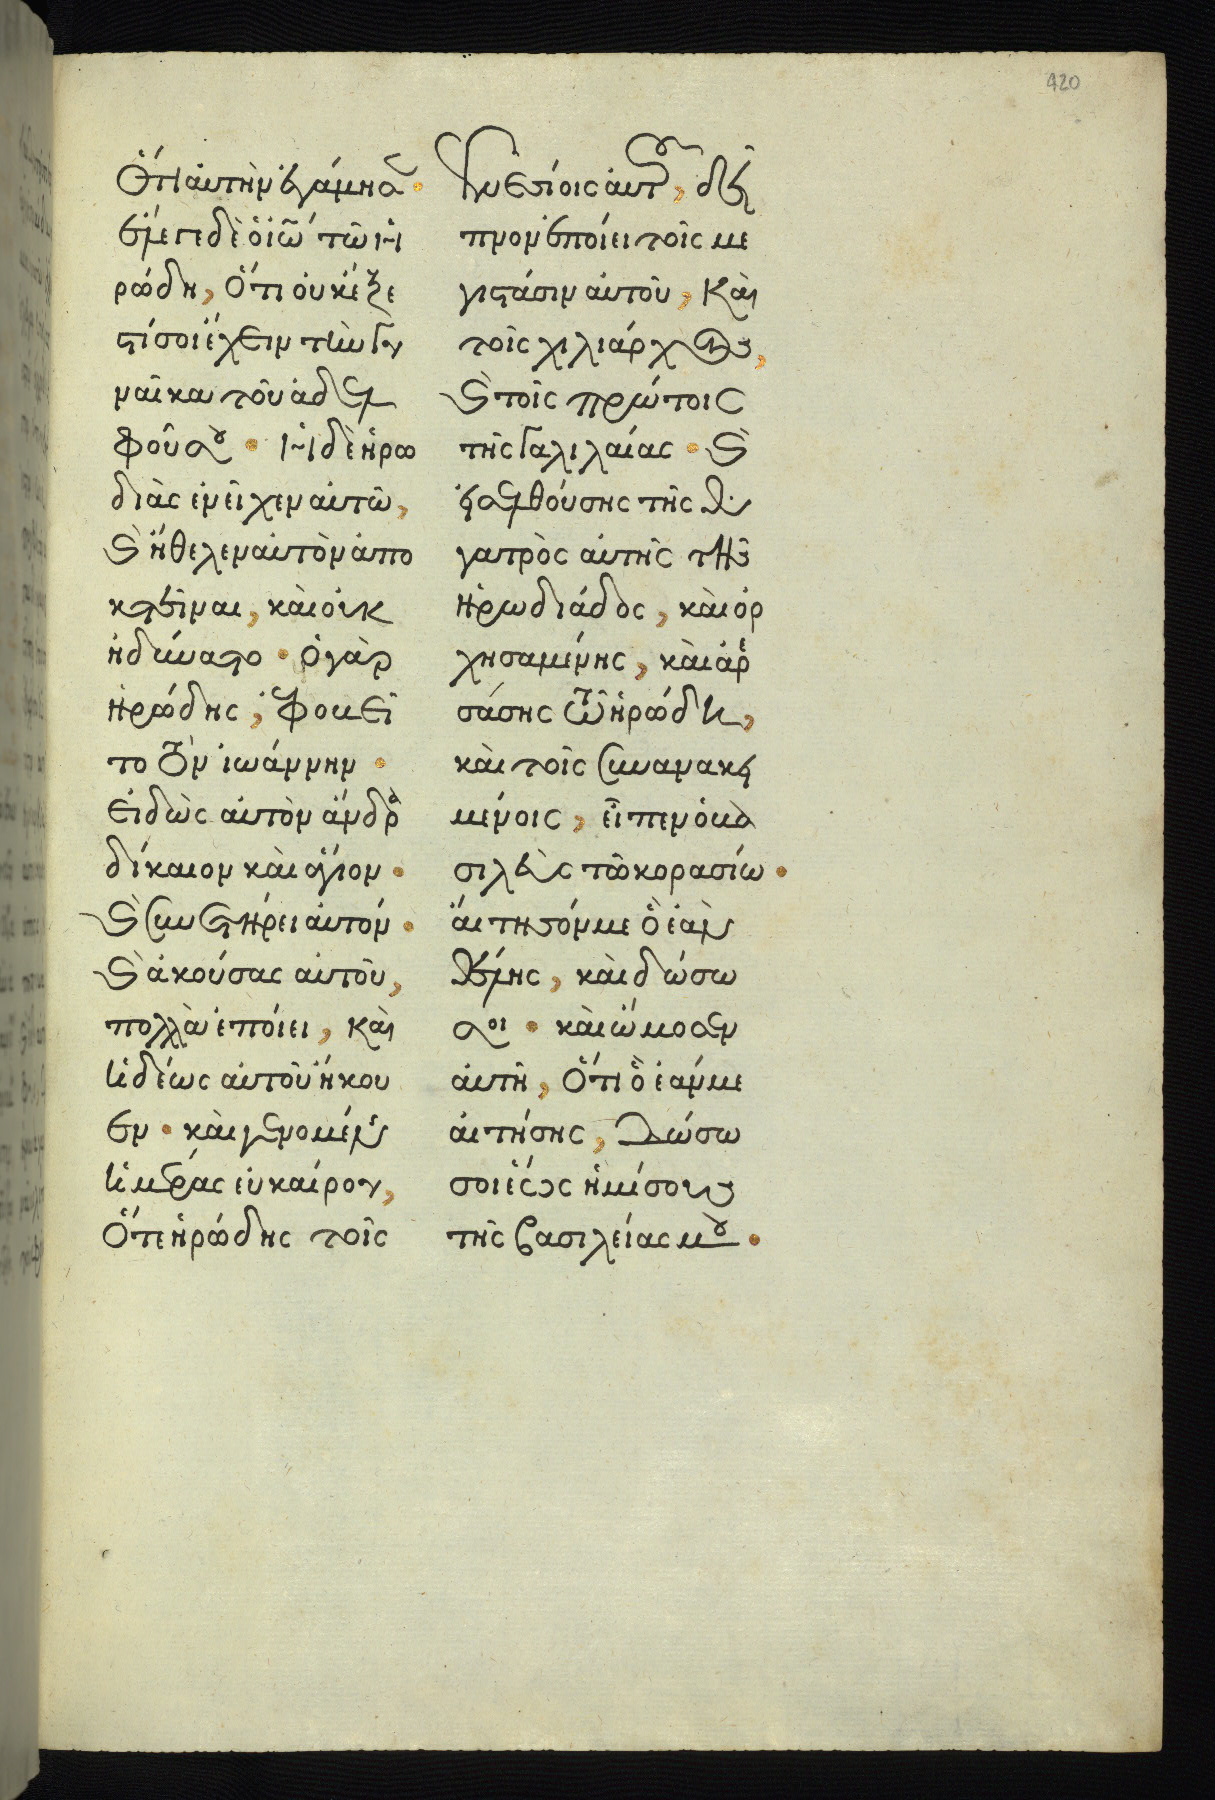 420
Ὅτι αὐτὴν ἐγάμησεν ·
ἔλεγε δὲ ὁ ἰω τῶ ἡ
ρώδη, Ὅτι οὐκ ἔξε
στί σοι ἔχειν τὴν γυ
ναῖκα τοῦ ἀδελ
φοῦ σου · Ἡ δὲ ἡρω
διὰς ἐνεῖχεν αὐτῶ,
καὶ ἤθελεν αὐτὸν ἀπο
κτεῖναι, καὶ οὐκ
ἠδύνατο · ὁ γὰρ
ἡρώδης, ἐφοβεῖ
το τὸν ἰωάννην ·
εἰδὼς αὐτὸν ἄνδρα
δίκαιον καὶ ἅγιον ·
καὶ συνετήρει αὐτόν ·
καὶ ἀκούσας αὐτοῦ,
πολλὰ ἐποίει, καὶ
ἡδέως αὐτοῦ ἤκου
εν · καὶ γενομένης
ἡμέρας εὐκαίρου,
Ὅτε ἡρώδης τοῖς
γενεσίοις αὐτοῦ, δεῖ
πνον ἐποίει τοῖς με
γιστάσιν αὐτοῦ, καὶ
τοῖς χιλιάρχοις,
καὶ τοῖς πρώτοις
τῆς Γαλιλαίας · καὶ
εἰσελθούσης τῆς θυ
γατρὸς αὐτῆς τῆς
ἡρωδιάδος, καὶ ὀρ
χησαμένης, καὶ ἀρε
σάσης τῶ ἡρώδη,
καὶ τοῖς συνανακει
μένοις, εἶπεν ὁ βα
σιλεὺς τῶ κορασίω ·
αἴτησόν με ὃ ἐὰν
θέλης, καὶ δώσω
σοι · καὶ ὤμοσεν
αὐτῆ, Ὅτι ὃ ἐάν με
αἰτήσης, δώσω
σοι ἕως ἡμίσους
τῆς βασιλείας μου ·